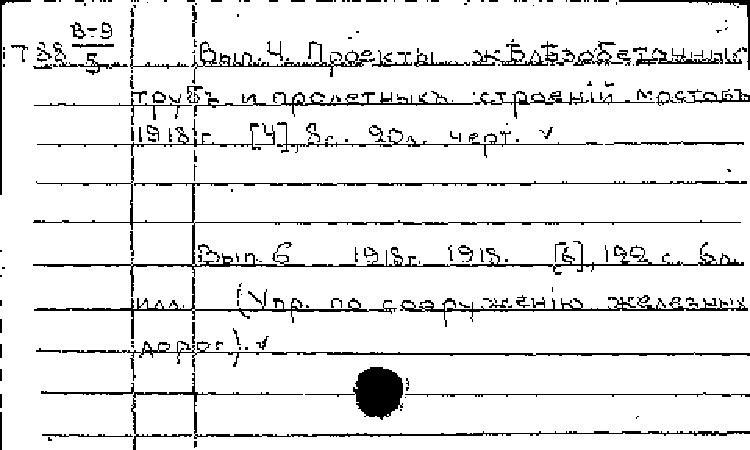 Т 38 В-9/5 Вып. 4. Проекты желѣзобетонныхъ
трубъ и пролетныхъ строеній мостовъ
1918 г. [4], 8 с. 20 л. черт. ✓
Вып. 6 1918 г. 1918. [6], 192 с. 6 л.
илл. (Упр. по сооруженію железных
дорог). ✓